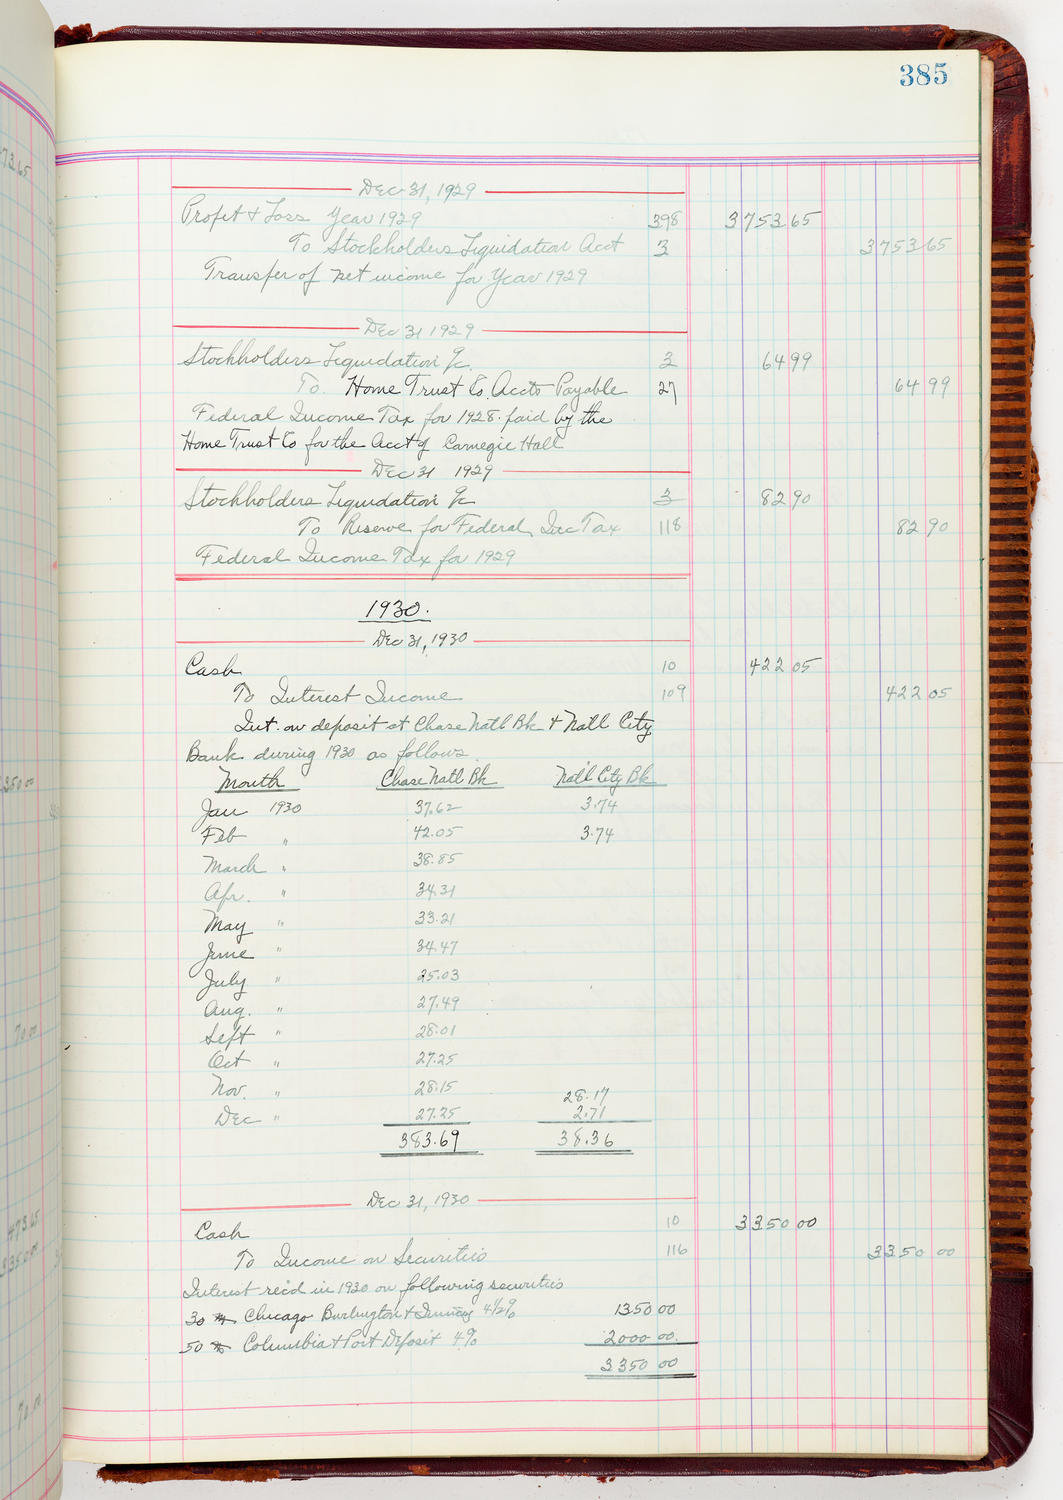 385
Dec 31, 1929
Profit & Loss Year 1929 398 3753 65
To Stockholders Liquidation Acct 3 3753 65
Transfer of net income for Year 1929
Dec 31 1929
Stockholders Liquidation a/c 3 64 99
To Home Trust Co. Accts Payable 27 64 99
Federal Income Tax for 1928 paid by the
Home Trust Co for the Acct of Carnegie Hall
Dec 31 1929
Stockholders Liquidation a/c 3 82 90
To Reserve for Federal Inc Tax 118 82 90
Federal Income Tax for 1929
1930.
Dec 31, 1930
Cash 10 422 05
To Interest Income 109 422 05
Int. on deposit at Chase Natl Bk & Natl City
Bank during 1930 as follows
Month Chase Natl Bk Natl City Bk
Jan 1930 37.62 3.74
Feb " 42.05 3.74
March " 38.85
Apr. " 34.31
May " 33.21
June " 34.47
July " 25.03
Aug. " 27.49
Sept " 28.01
Oct " 27.25
Nov. " 28.15 28.17
Dec " 27.25 2.71
383.69 38.36
Dec 31, 1930
Cash 10 3350 00
To Income on Securities 116 3350 00
Interest rec'd in 1930 on following securities
30 M Chicago Burlington & Quincy 4½% 1350 00
50 M Columbia & Port Deposit 4% 2000 00
3350 00
73.65
350 00
70.00
473.65
3350.00
70.00